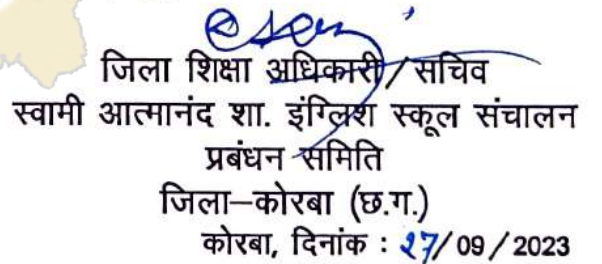 जिला शिक्षा अधिकारी / सचिव
स्वामी आत्मानंद शा. इंग्लिश स्कूल संचालन
प्रबंधन समिति
जिला–कोरबा (छ.ग.)
कोरबा, दिनांक : 27/ 09 / 2023